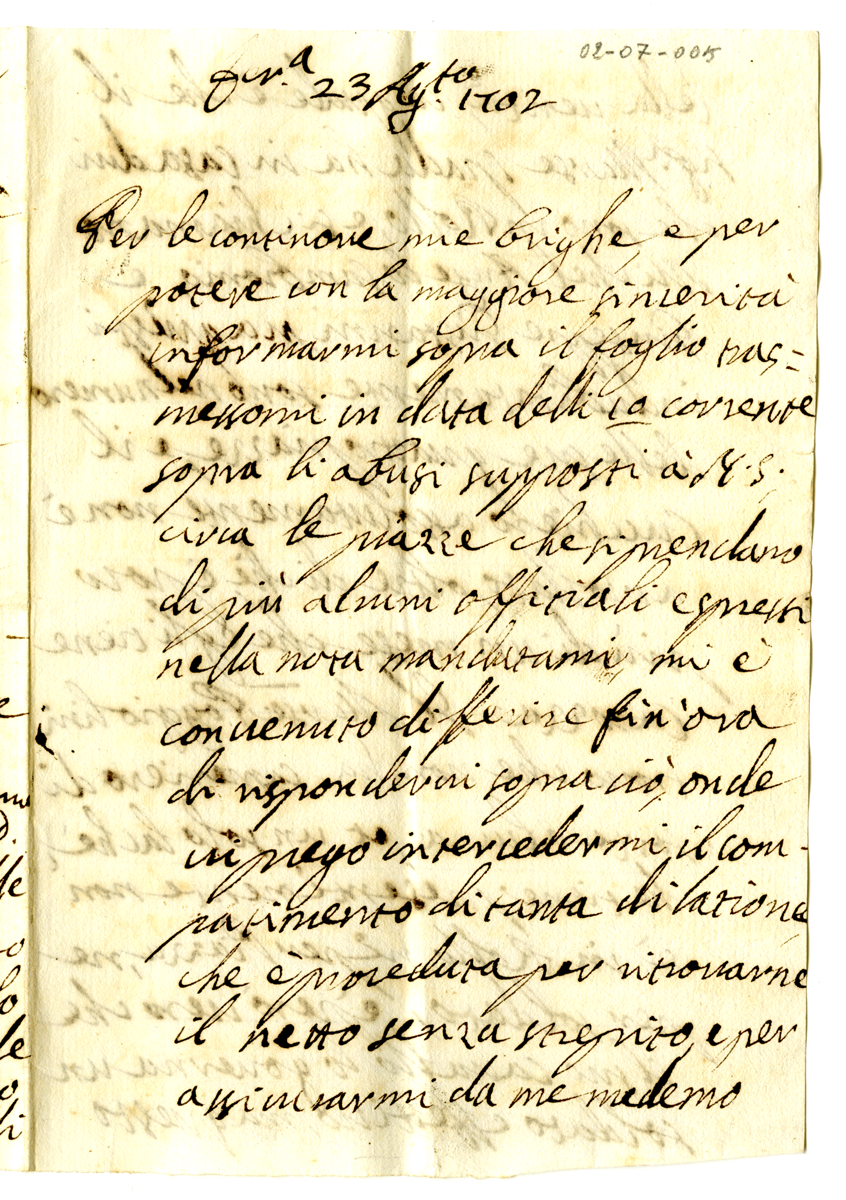 02-07-005
Fer.a 23 Ag.to 1702
Per le continoue mie brighe, e per
potere con la maggiore sincerità
informarmi sopra il foglio tras=
messomi in data delli 10 corrente
sopra li abusi supposti à N.S.
circa le piazze che si prendano
di più alcuni offitiali espressi
nella nota mandatami, mi è
conuenuto differire fin'ora
di risponderui sopra ciò, onde
ui prego intercedermi il com-
patimento di tanta dilatione,
che è proceduta per ritrouarne
il netto senza strepito, e per
assicurarmi da me medemo